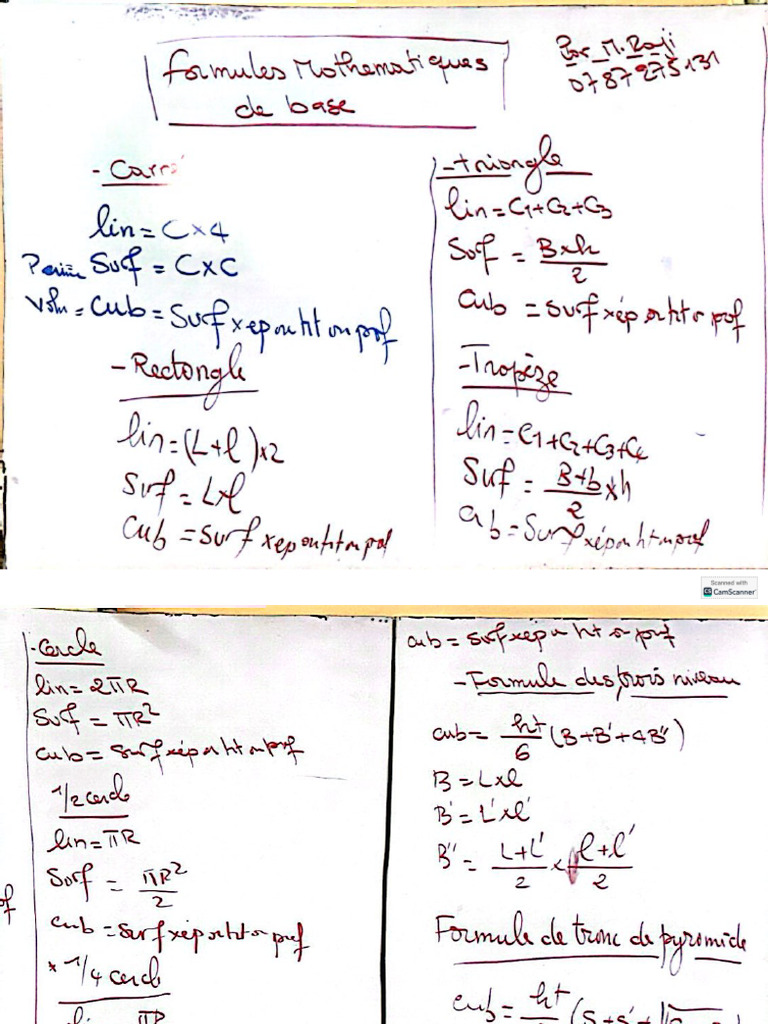 Formules Mathematiques
de base
Par M. Raji
0787275131
- Carré
lin = C x 4
Surf = C x C
cub = Surf x ep ou ht ou prof
- Rectangle
lin = (L+l) x2
Surf = L x l
Cub = Surf x ep ou ht ou prof
- triangle
lin = C1 + C2 + C3
Surf = B x h / 2
Cub = Surf x ép ou ht ou prof
- Trapèze
lin = C1 + C2 + C3 + C4
Surf = B+b / 2 x h
Cub = Surf x ép ou ht ou prof
Scanned with
CS CamScanner
- Cercle
lin = 2πR
Surf = πR²
cub = Surf x ép ou ht ou prof
1/2 cercle
lin = πR
Surf = πR² / 2
cub = surf x ép ou ht ou prof
* 1/4 cercle
lin πR
cub = surf x ép ou ht ou prof
- Formule des trois niveau
cub = ht / 6 (B + B' + 4B")
B = L x l
B' = L' x l'
B" = L+L' / 2 x l+l' / 2
Formule de tronc de pyramide
cub = ht (S + S' + √